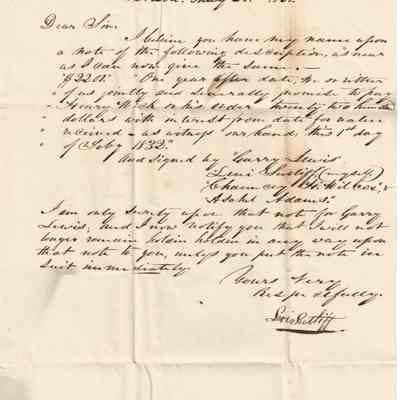 Dear Sir.
I believe you have my name upon
a note of the following description, as near
as I can now give the same. -
"$2200. "One year after date, we or either
" of us jointly and severally promise to pay
" Henry Wish or his order twenty two hundred
" dollars with interest from date for value
" received - as witness our hands this 1st day
" of July 1832."
And signed by "Garry Lewis
"Levi Sutliff (myself)
"Chauncey H. Wilcox, &
"Asahl Adams."
I am only surety upon that note for Garry
Lewis, and I now notify you that I will not
longer remain holden in any way upon
that note to you, unless you put the note in
Suit immediately.
Yours Very
Respectfully.
Levi Sutliff